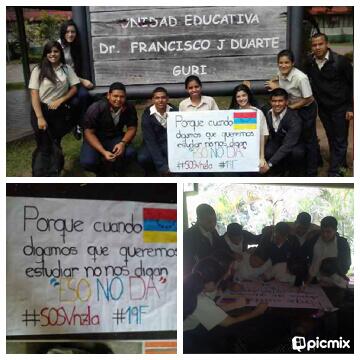 UNIDAD EDUCATIVA
Dr. FRANCISCO J DUARTE
GURI
Porque cuando
digamos que queremos
estudiar no nos digan
"ESO NO DA"
#SOSVnzla #19F
Porque cuando
digamos que queremos
estudiar no nos digan
"ESO NO DA"
#SOSVnzla #19F
picmix